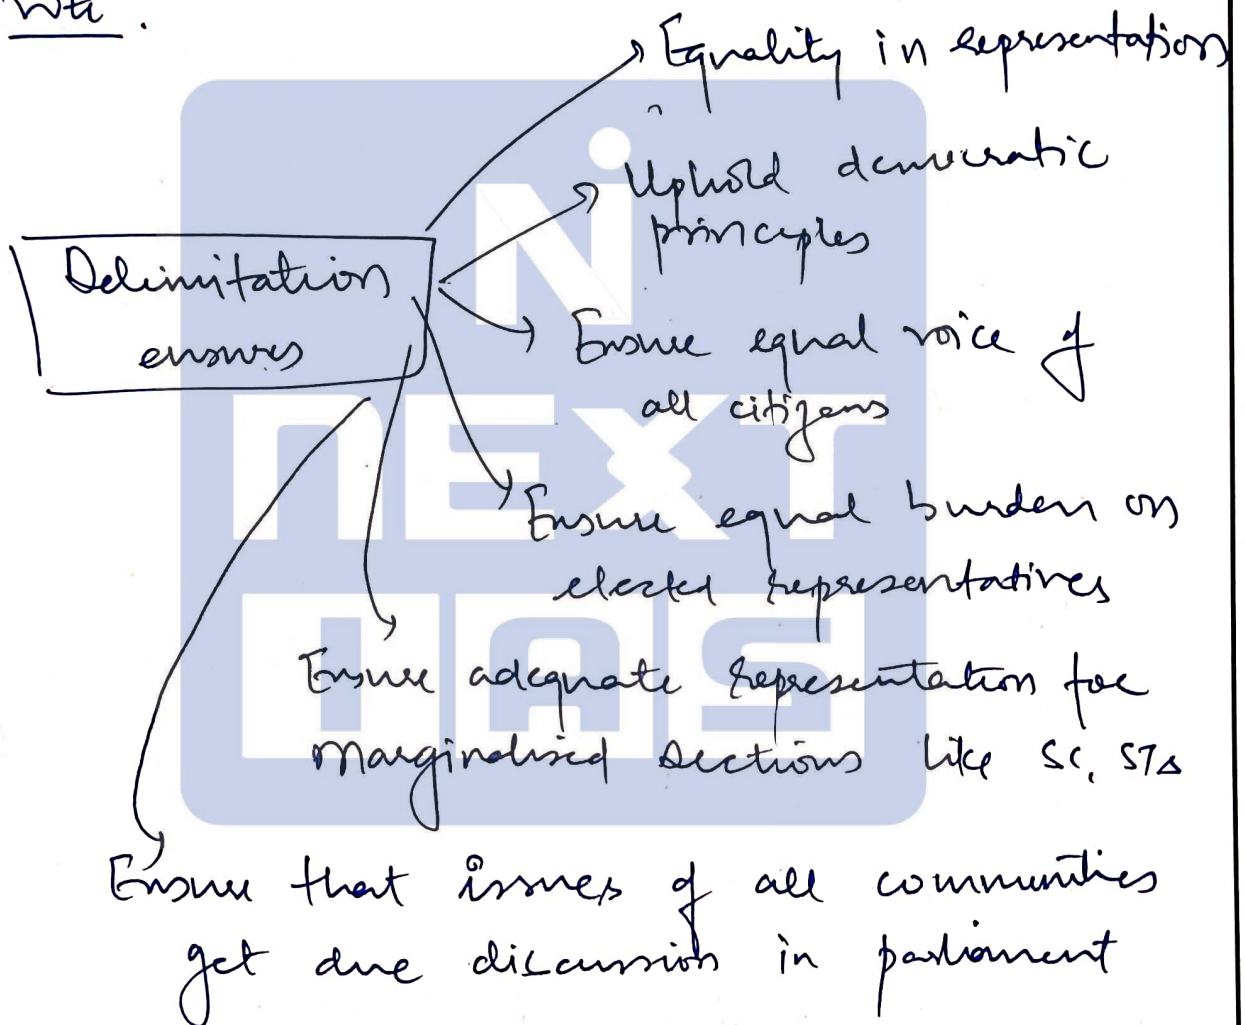 Equality in representation
Uphold democratic
principles
Delimitation
ensures
Ensure equal voice of
all citizens
Ensure equal burden on
elected representatives
Ensure adequate representation for
marginalised sections like SC, STs
Ensure that issues of all communities
get due discussion in parliament
NEXT
IAS